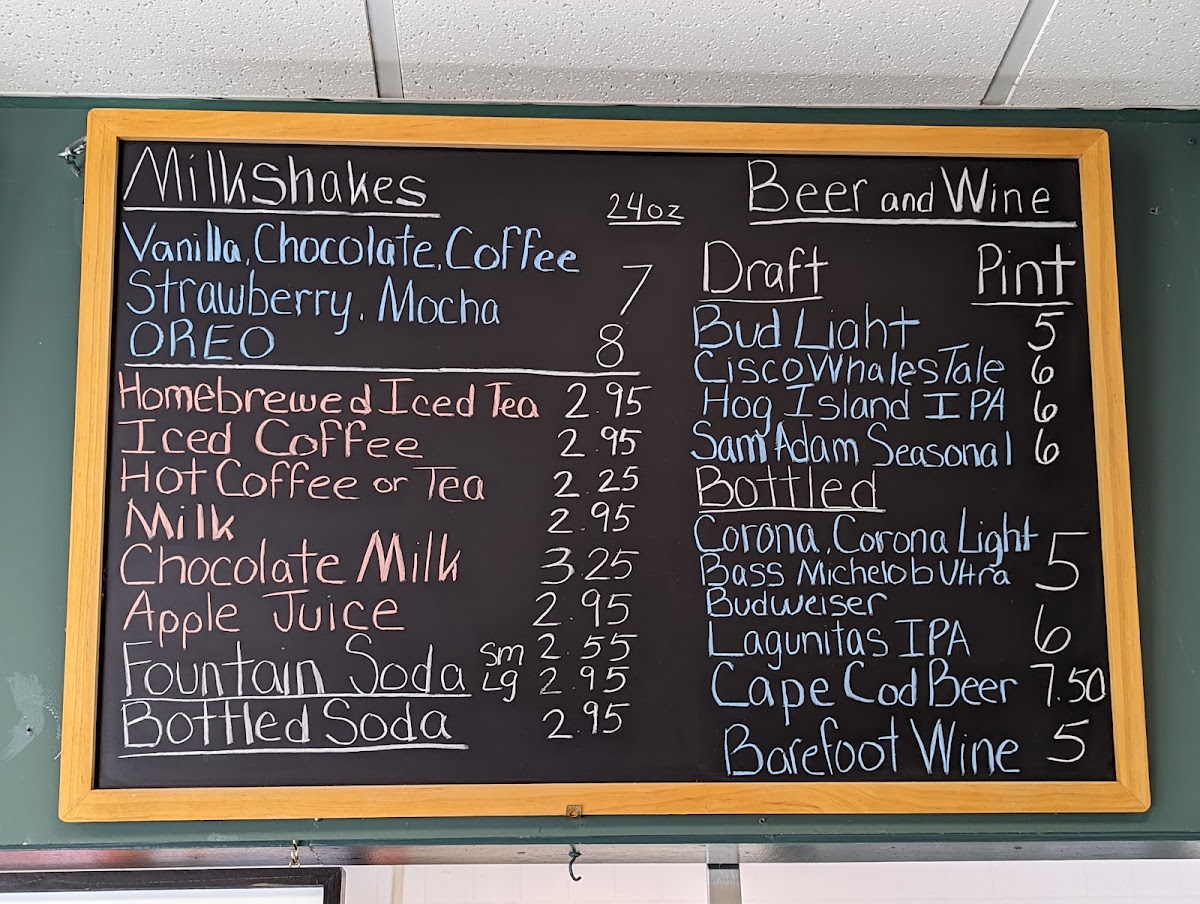 Milkshakes
24oz
Vanilla, Chocolate, Coffee
Strawberry, Mocha 7
OREO 8
Homebrewed Iced Tea 2.95
Iced Coffee 2.95
Hot Coffee or Tea 2.25
Milk 2.95
Chocolate Milk 3.25
Apple Juice 2.95
Fountain Soda sm 2.55
Lg 2.95
Bottled Soda 2.95
Beer and Wine
Draft Pint
Bud Light 5
Cisco Whales Tale 6
Hog Island IPA 6
Sam Adam Seasonal 6
Bottled
Corona, Corona Light
Bass Michelob Ultra 5
Budweiser
Lagunitas IPA 6
Cape Cod Beer 7.50
Barefoot Wine 5